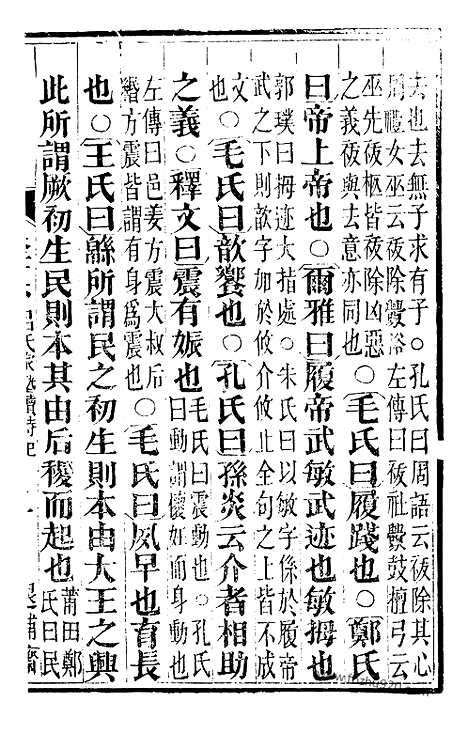 去也去無子求有子○孔氏曰周語云祓除其心
周禮女巫云祓除釁浴左傳曰祓社釁鼓檀弓云
巫先祓柩皆祓除凶惡
之義祓與去意亦同也
○毛氏曰履踐也○鄭氏
曰帝上帝也○爾雅曰履帝武敏武迹也敏拇也
郭璞曰拇迹大指處○朱氏曰以敏字係於履帝
武之下則歆字加於攸介攸止全句之上皆不成
文也
○毛氏曰歆饗也○孔氏曰孫炎云介者相助
之義○釋文曰震有娠也
毛氏曰震動也○孔氏
曰動謂懷妊而身動也
左傳曰邑姜方震大叔后
緡方震皆謂有身為震也
○毛氏曰夙早也育長
也○王氏曰緜所謂民之初生則本由大王之興
此所謂厥初生民則本其由后稷而起也
莆田鄭
氏曰民
呂氏家塾讀詩記
退補齋